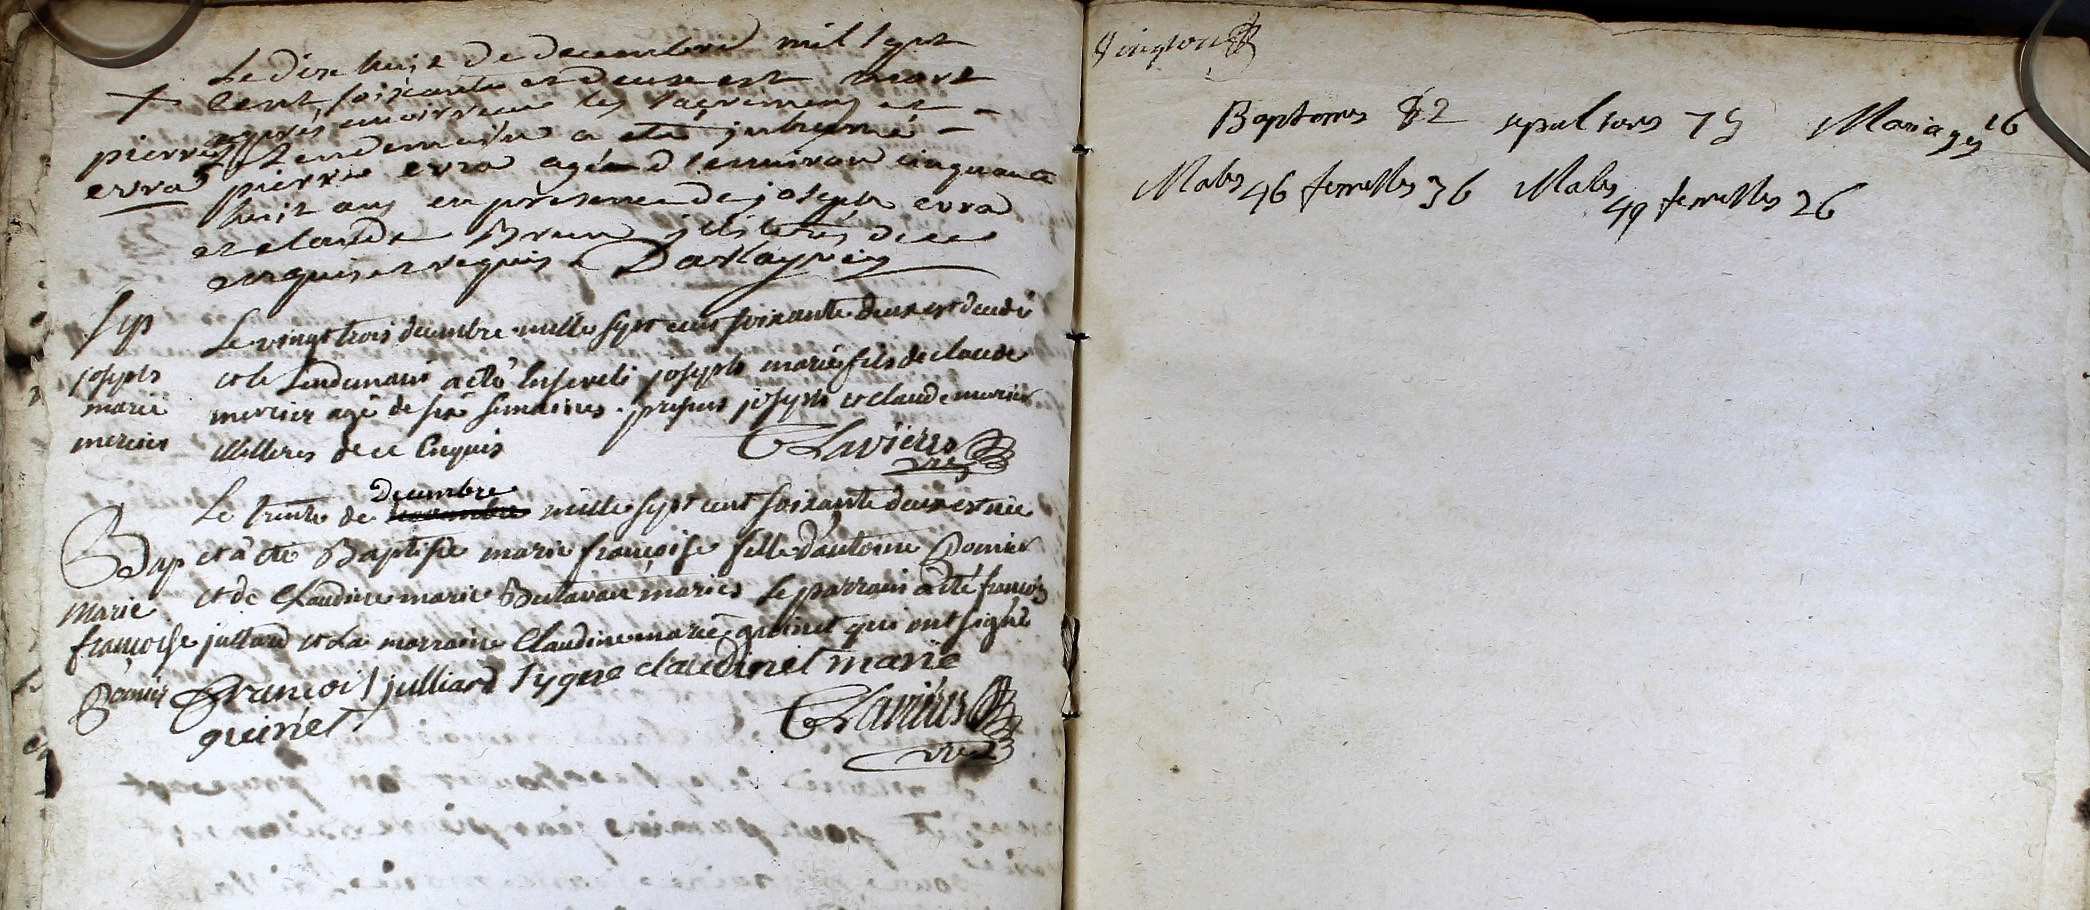 Le dix huit de decembre mil sept
cent soixante et deux est mort
après avoir reçu les sacrements et
Lendemain a eté inhumé
pierre evra agé d'environ cinquante
huit ans en presence de joseph evra
et claude Brun illiterés de ce
enquis et requis
pierre
evra
Sep
joseph
marie
mercier
Le vingt trois decembre mille sept cent soixante deux est decedé
et le Lendemain a été enseveli joseph marie fils de claude
mercier agé de six semaines. presens joseph et claude mercier
illiteres de ce Enquis
Clavières
vre
Bap
Marie
françoise
Domier
decembre
Le trente de novembre mille sept cent soixante deux est née
et a été Baptisée marie françoise fille d'antoine Domier
et de Claudine marie mariés Le parrain a été francois
julliard et La marraine Claudine marie quinet qui ont signé
François julliard sygne claudinet marie
quinet
Clavières
vre
Baptemes 82 sepultures 75 Mariages 16
Males 46 femelles 36 Males 49 femelles 26